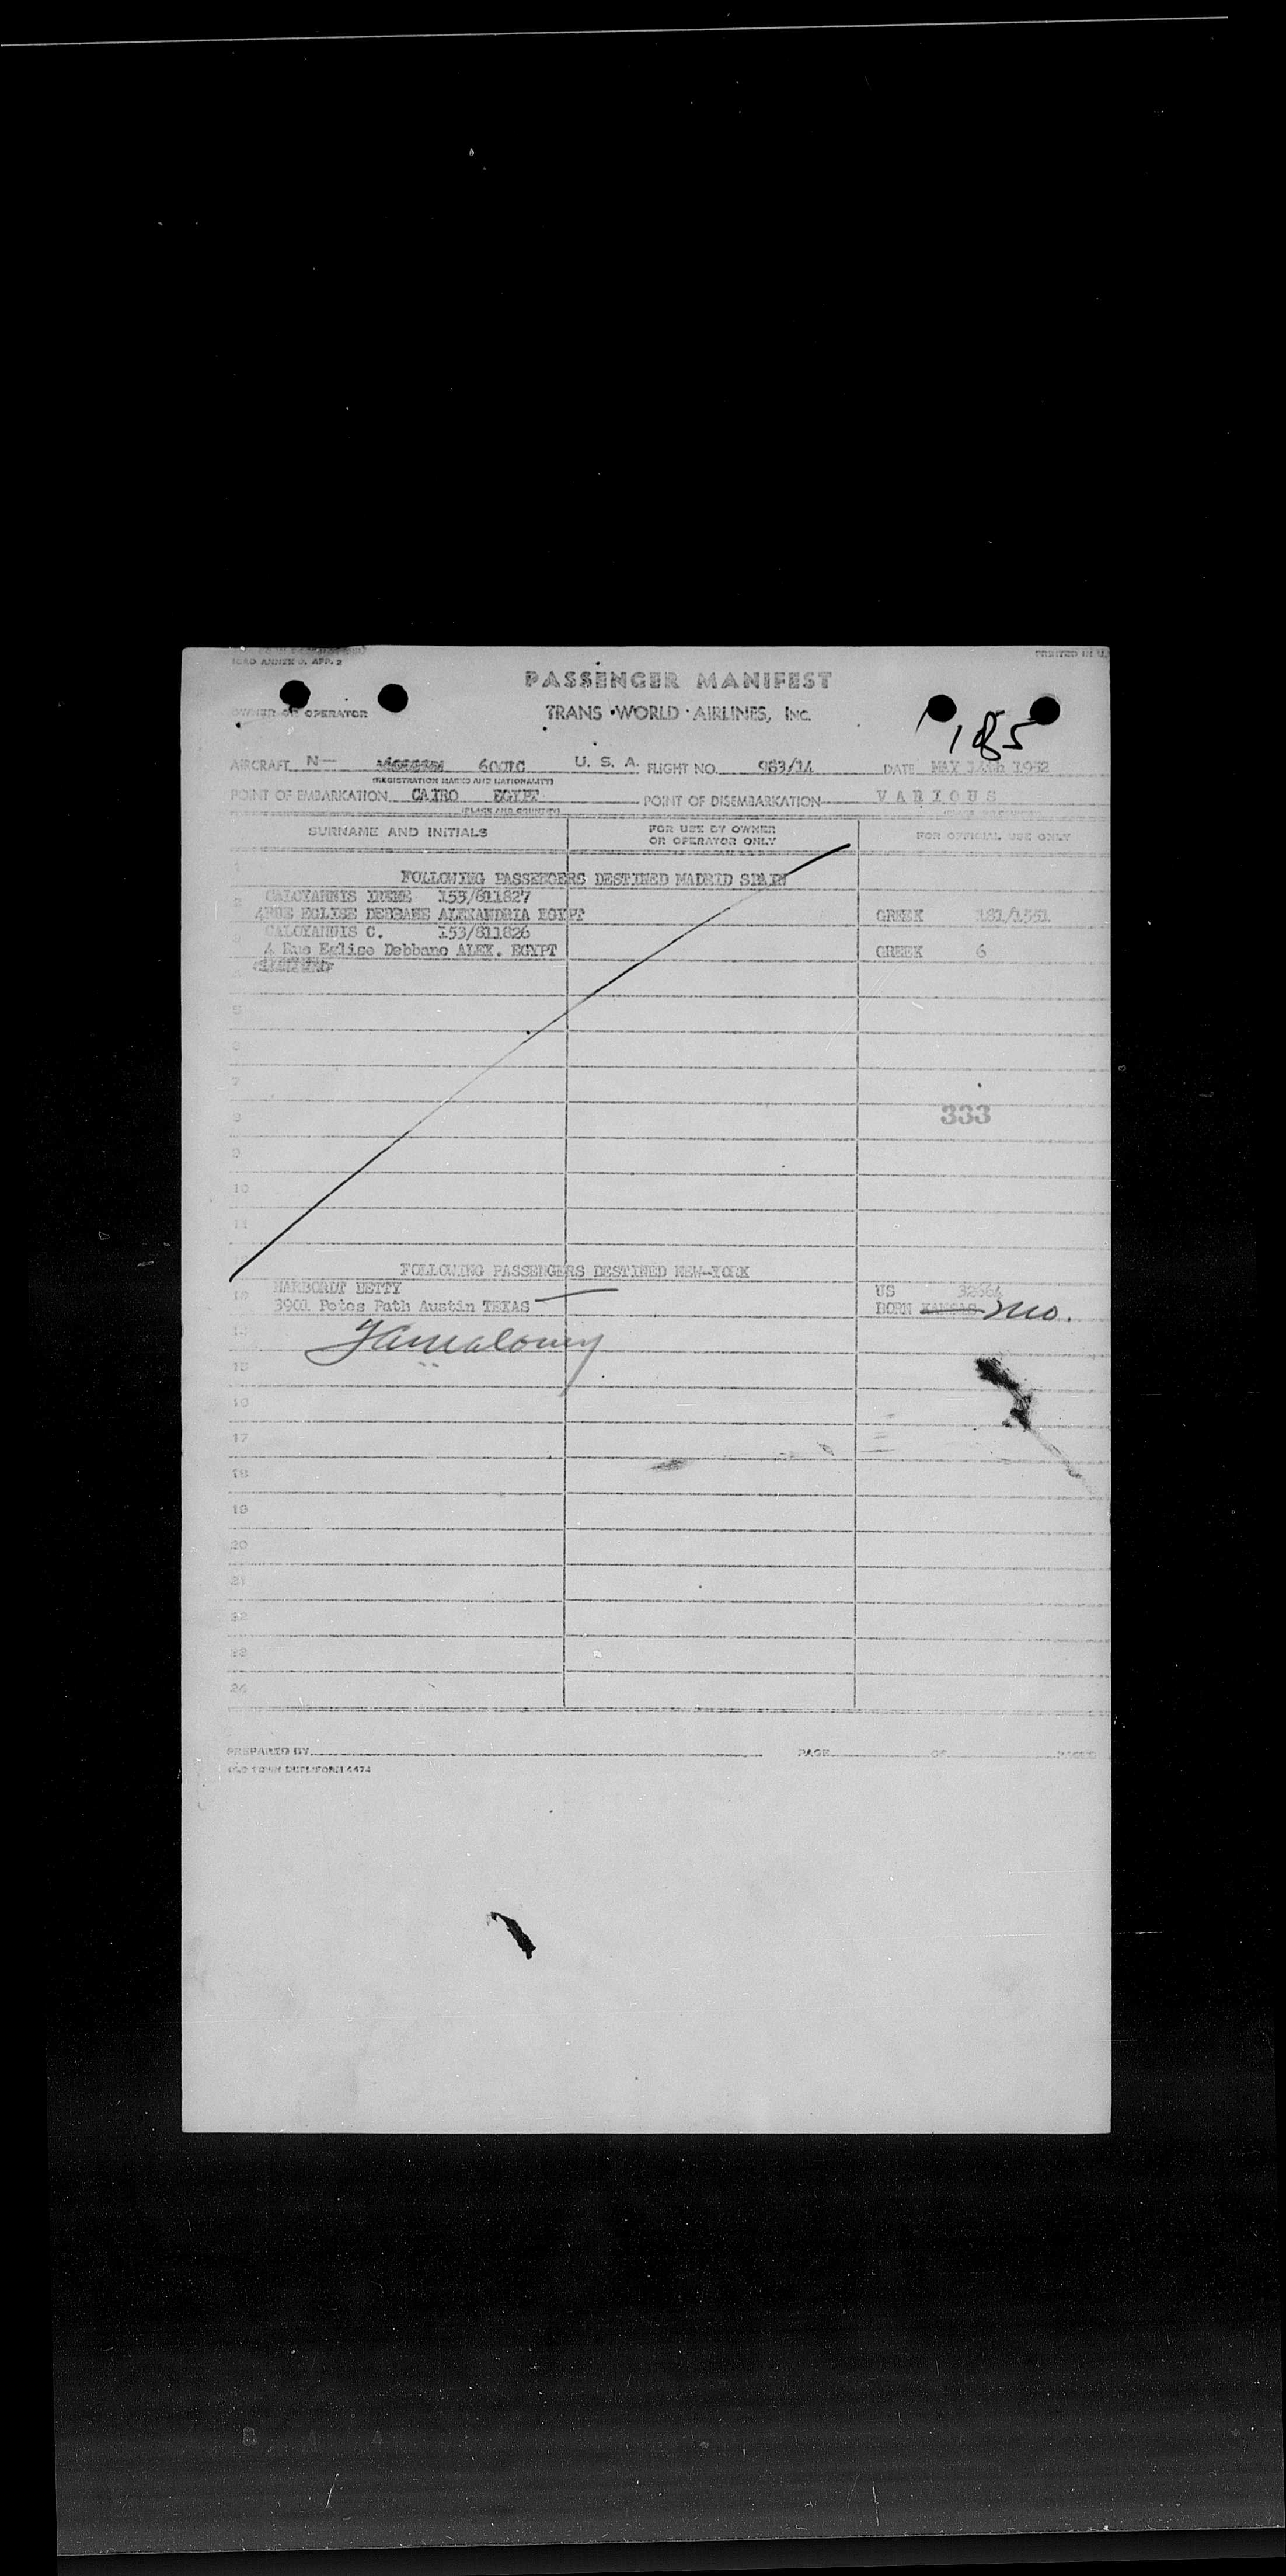 ICAO ANNEX 9, APP. 2
PRINTED IN U.
PASSENGER MANIFEST
OWNER OR OPERATOR
TRANS WORLD AIRLINES, INC.
1 of 5
AIRCRAFT N— U. S. A. FLIGHT NO. 983/14 DATE MAY 1952
(REGISTRATION MARKS AND NATIONALITY)
POINT OF EMBARKATION CAIRO EGYPT POINT OF DISEMBARKATION VARIOUS
(PLACE AND COUNTRY)
SURNAME AND INITIALS FOR USE BY OWNER OR OPERATOR ONLY FOR OFFICIAL USE ONLY
1
FOLLOWING PASSENGERS DESTINED MADRID SPAIN
2 CALOYANNIS IRENE 153/811827
4RUE EGLISE DEBBANE ALEXANDRIA EGYPT GREEK 181/1551
3 CALOYANNIS C. 153/811826
4 Rue Eglise Debbane ALEX. EGYPT GREEK 6
4
5
6
7
8 333
9
10
11
FOLLOWING PASSENGERS DESTINED NEW-YORK
HARBORDT BETTY US 32664
3901 Petes Path Austin TEXAS BORN KANSAS Mo.
14
15
16
17
18
19
20
21
22
23
24
PREPARED BY PAGE OF PAGES
OLD TOWN DUPL. FORM 4474